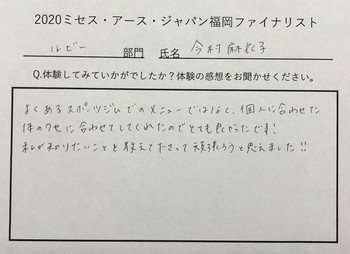 2020ミセス・アース・ジャパン福岡ファイナリスト
ルビー 部門 氏名 今村麻衣子
Q.体験してみていかがでしたか?体験の感想をお聞かせください。
よくあるスポーツジムでのメニューではなく、個人に合わせた
体のクセに合わせてしてくれたのでとても良かったです!
私が知りたいことを教えて下さって頑張ろうと思えました!!